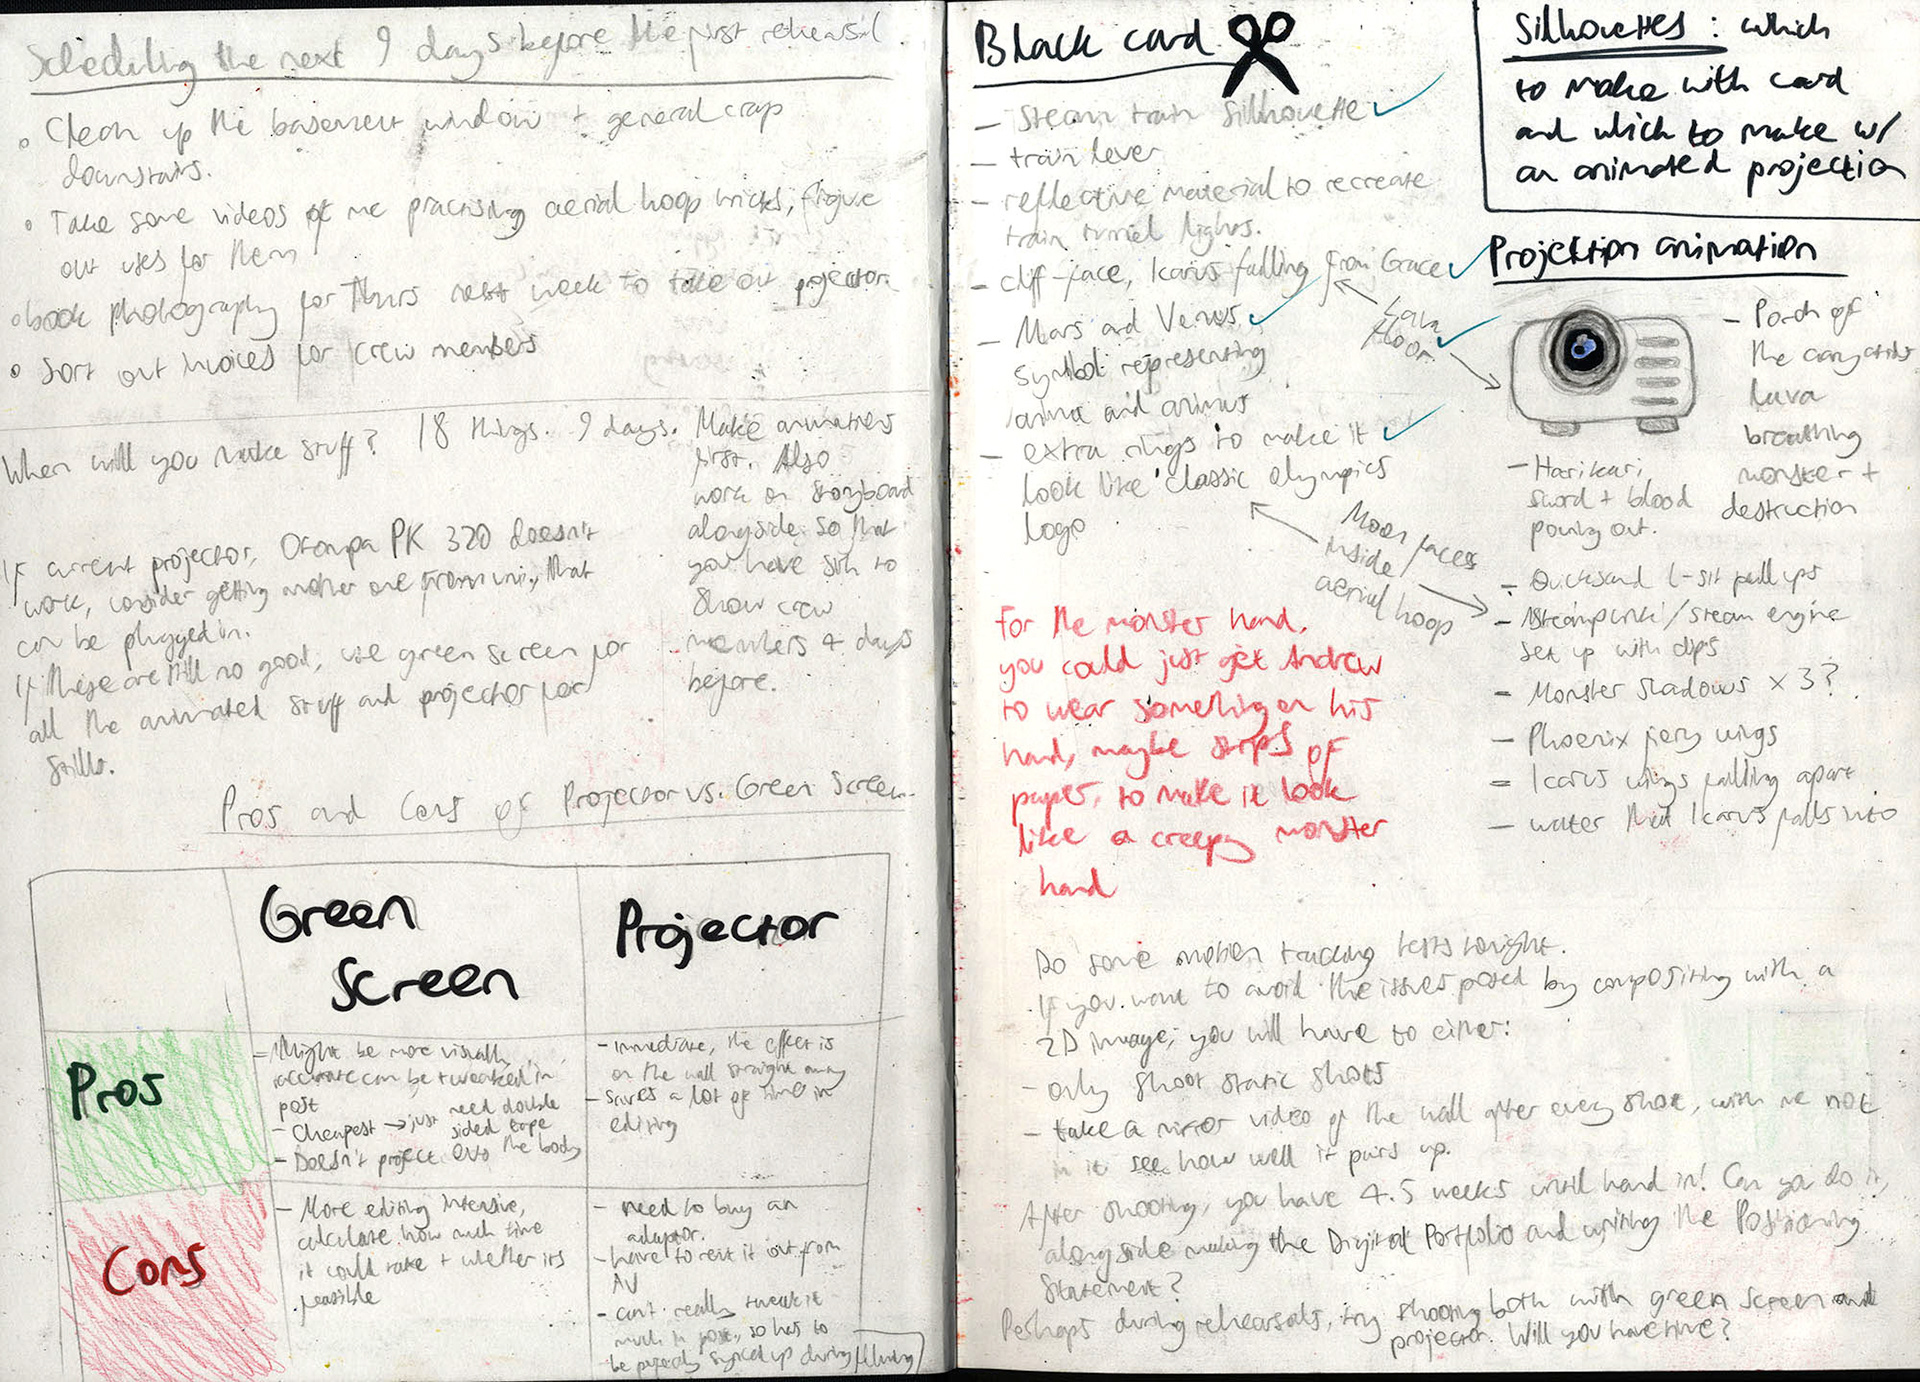 Scheduling the next 9 days before the first rehearsal.
Clean up the basement window + general crap
downstairs.
Take some videos of me practising aerial hoop tricks, figure
out uses for them
book photography for Thurs next week to take out projector
Sort out invoices for crew members
When will you make stuff? 18 things. 9 days.
Make animations
first. Also
work on storyboard
alongside so that
you have sth to
show crew
members 4 days
before.
If current projector, PK 320 doesn't
work, consider getting another one from uni, that
can be plugged in.
If these are still no good, use green screen for
all the animated stuff and projector for
stills.
Pros and Cons of Projector vs. Green Screen.
Green
Screen
Projector
Pros
- Might be more visually
accurate can be tweaked in
post
- Cheapest → just need double
sided tape
- Doesn't project onto the body
- immediate, the effect is
on the wall straight away
- saves a lot of time in
editing
Cons
- More editing intensive,
calculate how much time
it could take + whether its
feasible
- need to buy an
adaptor.
- have to rent it out from
AV
- can't really tweak it
much in post, so has to
be perfectly synced up during filming
Black card
- Steam train Sillhouette ✓
- train lever
- reflective material to recreate
train tunnel lights.
- cliff-face, Icarus falling from Grace ✓
- Mars and Venus ✓
symbol representing
anima and animus
- extra rings to make it ✓
look like classic olympics
logo
Lava
floor. ✓
Moon faces
inside
aerial hoop
For the monster hand,
you could just get Andrew
to wear something on his
hand, maybe strips of
paper, to make it look
like a creepy monster
hand
Sillhouettes: which
to make with card
and which to make w/
an animated projection
Projektion animation
- Porch of
the caryatids
lava
breathing
monster +
destruction
- Harikari
sword + blood
pouring out.
- Quicksand L-sit pull ups
- Steampunk/steam engine
set up with dips
- Monster shadows x 3?
- Phoenix fiery wings
- Icarus wings falling apart
- water that Icarus falls into
Do some motion tracking tests tonight.
If you want to avoid the issues posed by compositing with a
2D image, you will have to either:
- only shoot static shots
- take a mirror video of the wall after every shot, with me not
in it see how well it pairs up.
After shooting, you have 4.5 weeks until hand in! Can you do it,
alongside making the Digital Portfolio and writing the Positioning
Statement?
Perhaps during rehearsals, try shooting both with green screen and
projector. Will you have time?